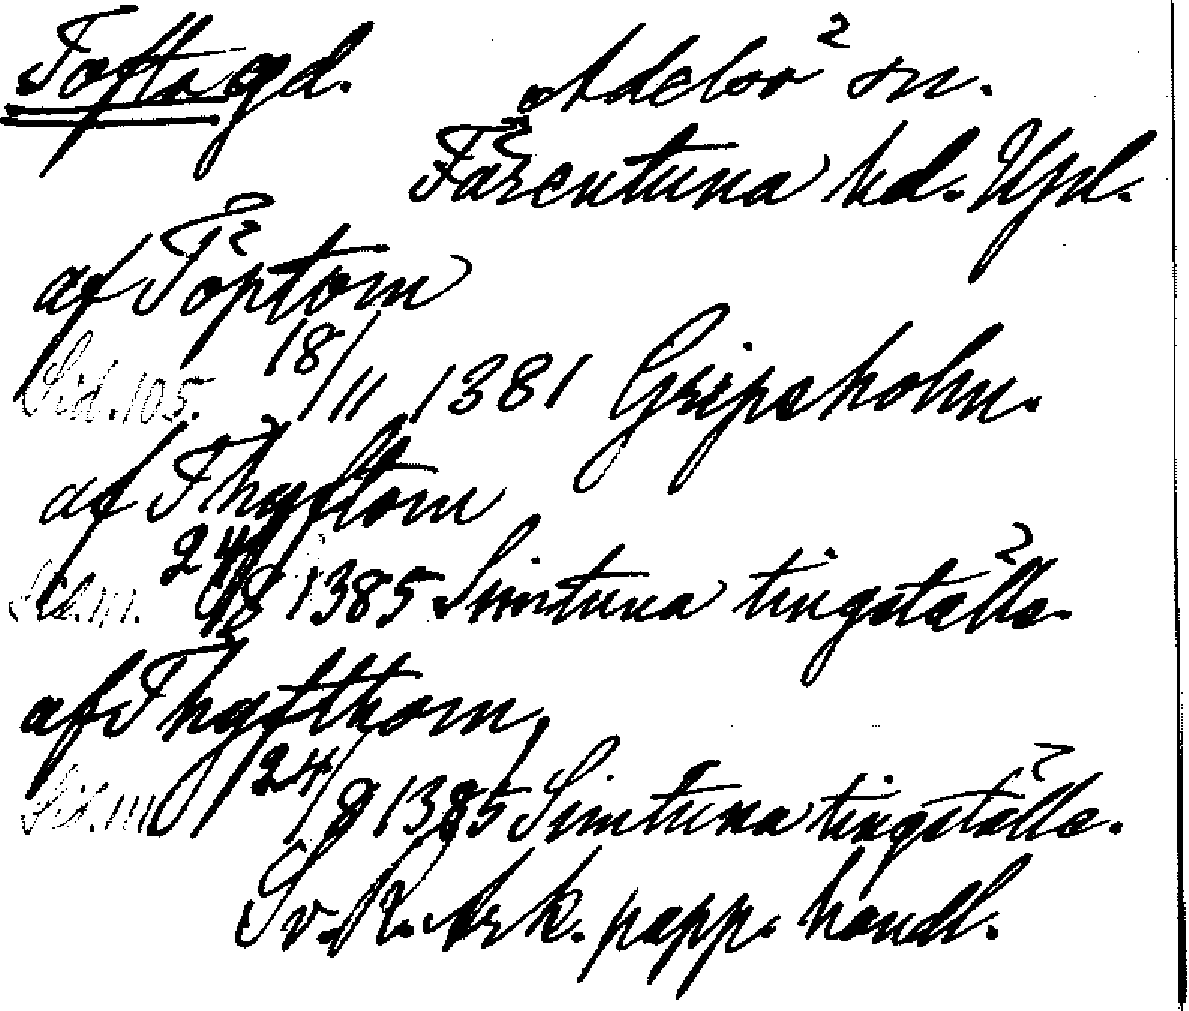 Tofta gd. Adelsö sn.
Färentuna hd. Upl.
af Töptom
Sid. 105. 18/11 1381 Gripsholm.
af Thyftom
Sid. 111. 24/8 1385 Simtuna tingställe.
af Thyfthom,
Sid. 111 24/8 1385 Simtuna tingställe.
Sv. R. Ark. papp. handl.